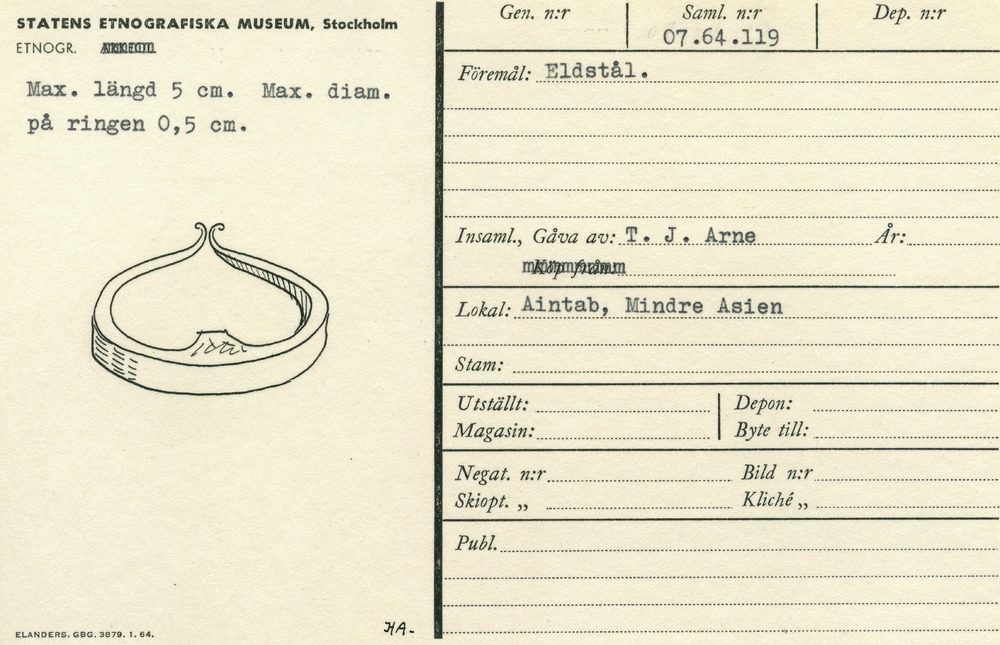 STATENS ETNOGRAFISKA MUSEUM, Stockholm
ETNOGR.
Max. längd 5 cm. Max. diam.
på ringen 0,5 cm.
ELANDERS. GBG. 3879. 1. 64.
HA-
Gen. n:r Saml. n:r Dep. n:r
07.64.119
Föremål: Eldstål.
Insaml., Gåva av: T. J. Arne År:
Köp från:
Lokal: Aintab, Mindre Asien
Stam:
Utställt: Depon:
Magasin: Byte till:
Negat. n:r Bild n:r
Skiopt. „ Kliché „
Publ.